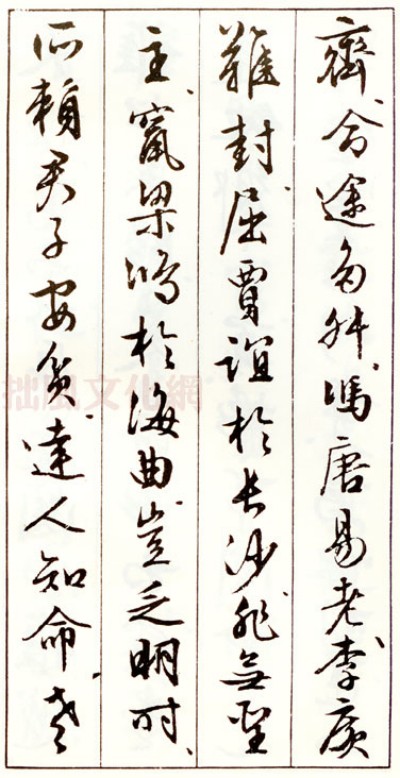 齊命途多舛馮唐易老李廣
難封屈賈誼於長沙非無聖
主竄梁鴻於海曲豈乏明時
所賴君子安貧達人知命老
拙風文化網